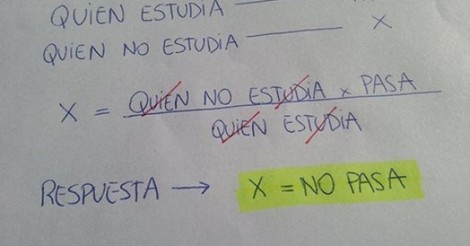 QUIEN ESTUDIA ———
QUIEN NO ESTUDIA ——— X
X = QUIEN NO ESTUDIA x PASA
QUIEN ESTUDIA
RESPUESTA → X = NO PASA